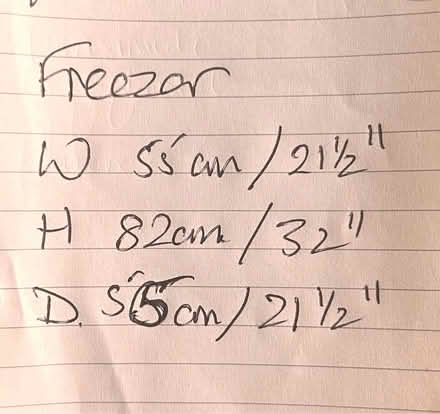 Freezer
W 55cm/21½"
H 82cm/32"
D. 55cm/21½"